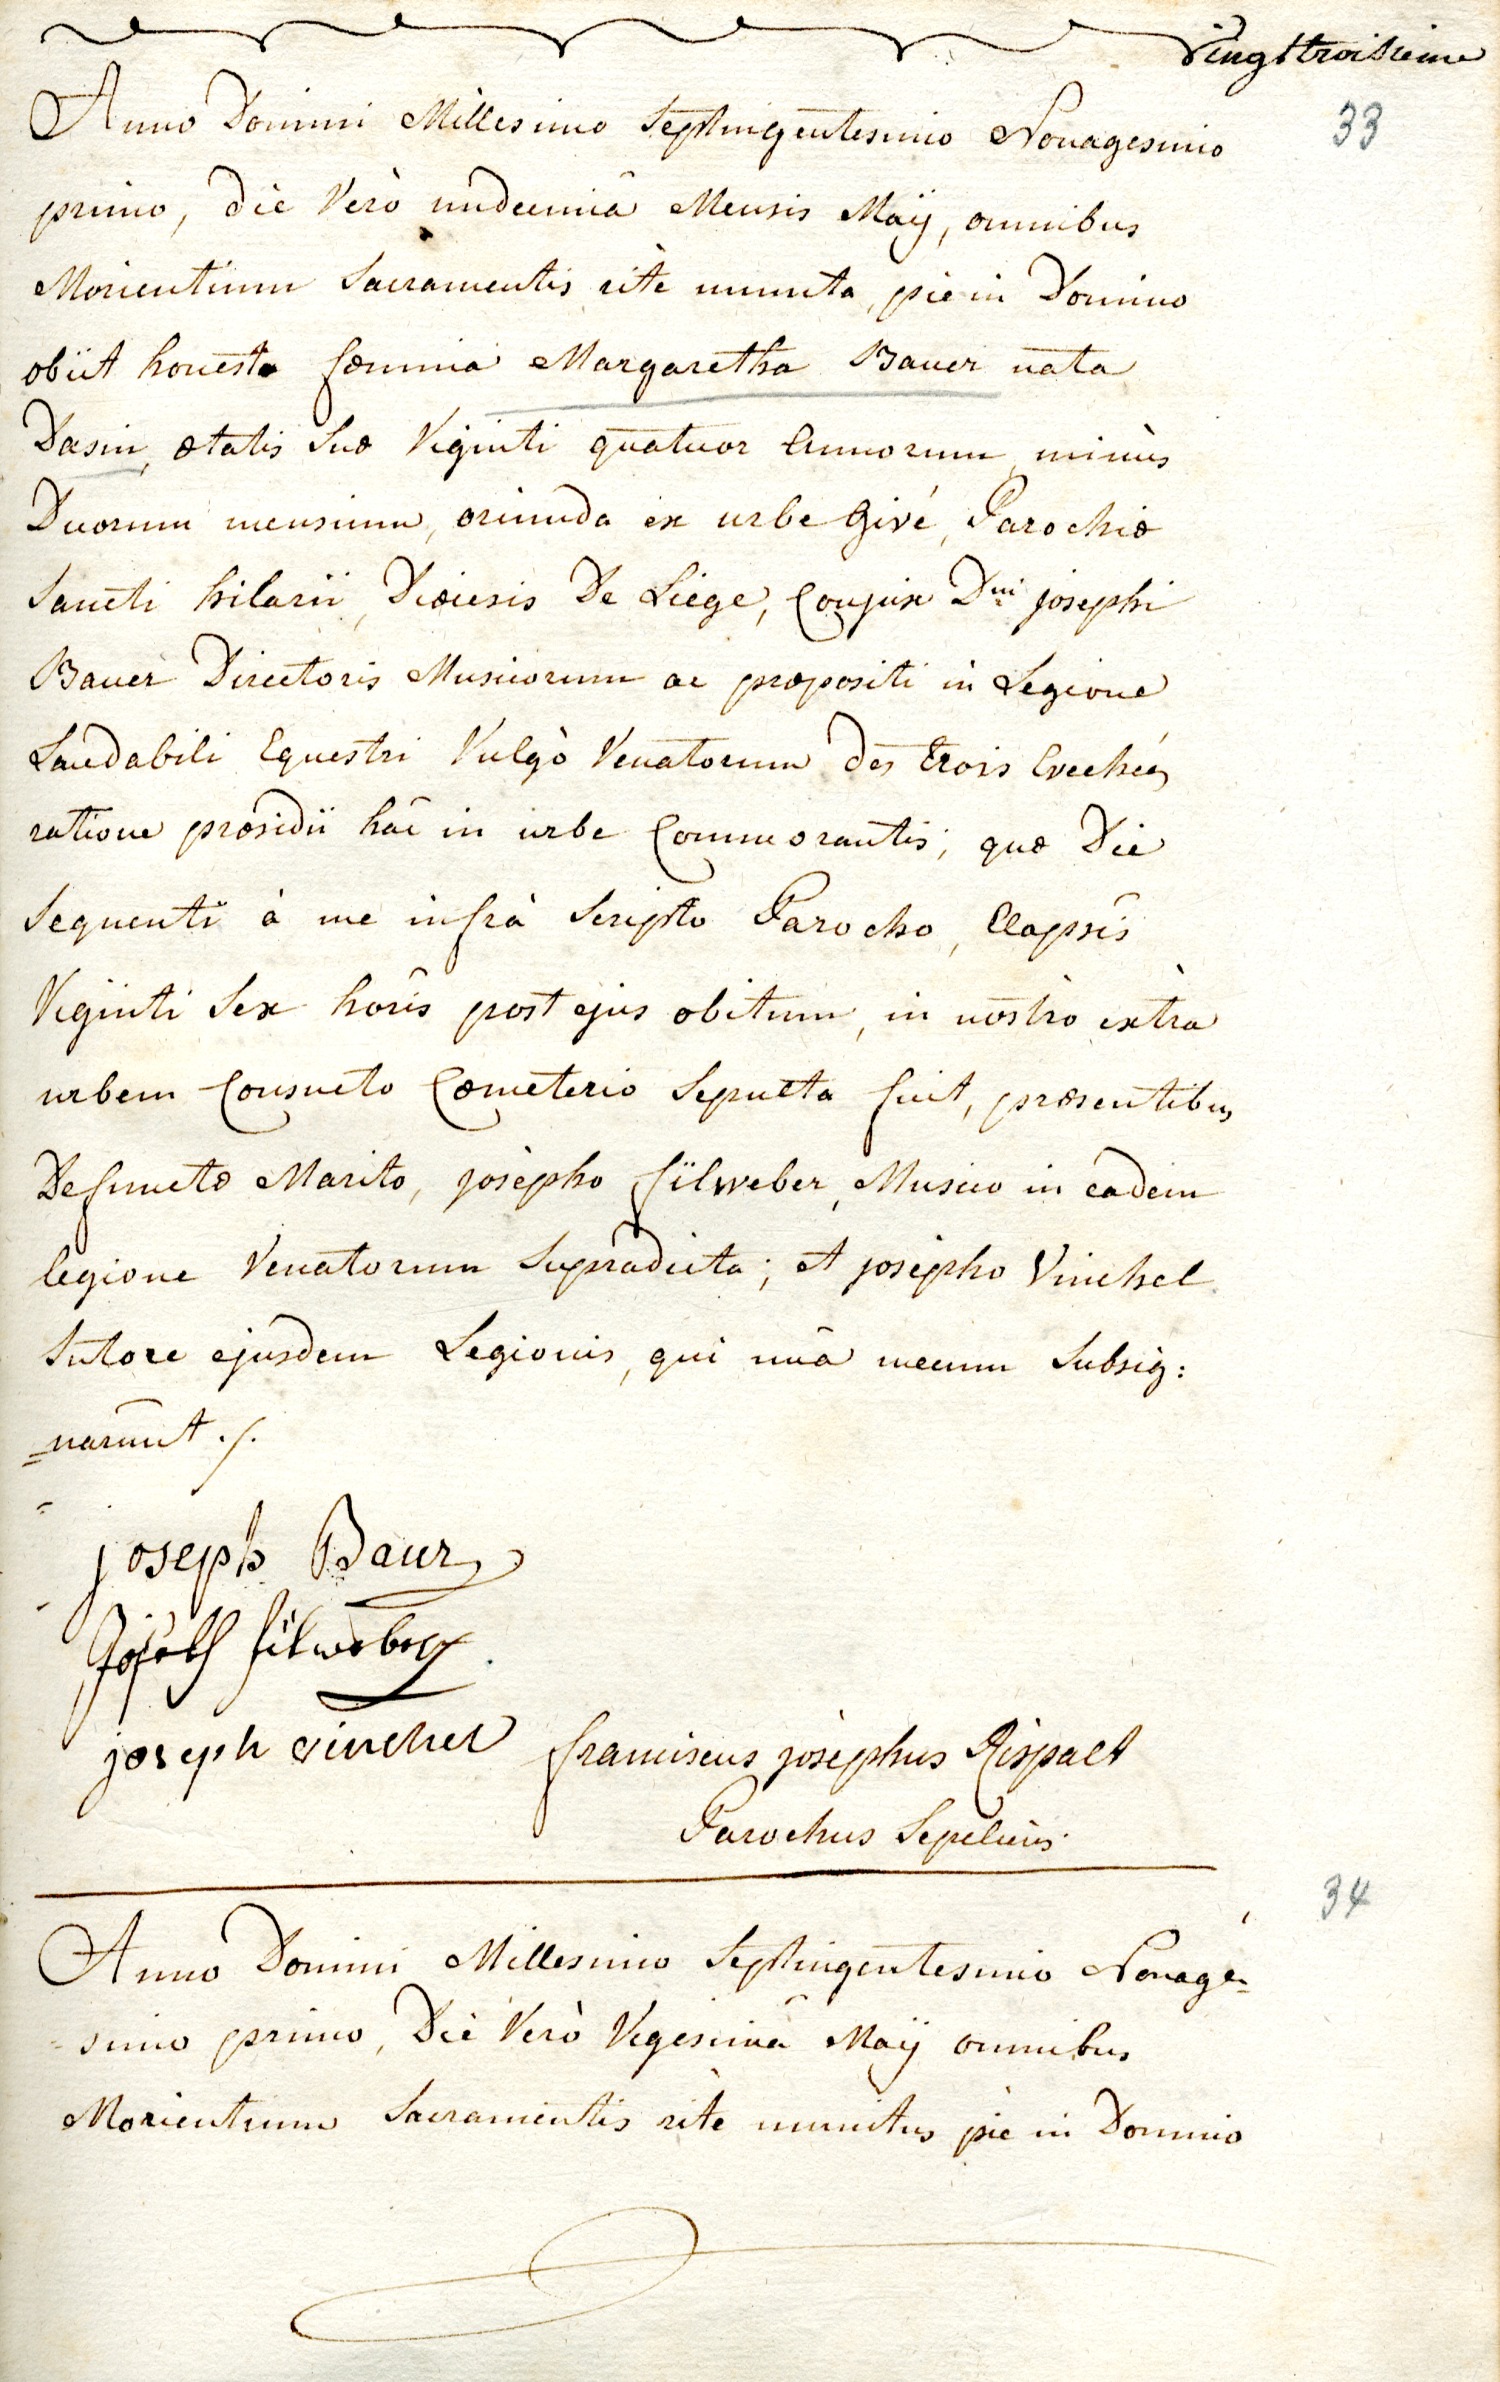 Vingttroisieme
33
Anno Domini Millesimo Septingentesimo Nonagesimo
primo, die Verò undecimâ Mensis Maÿ, omnibus
Morientium Sacramentis ritè munita, piè in Domino
obiit honesta fœmina Margaretha Bauer nata
Dasin, ætatis Suæ Viginti quatuor Annorum minùs
Duorum mensium, oriunda ex urbe Givé, Parochiæ
Sancti hilarii, Diœcesis De Liège, Conjux Dni josephi
Bauer Directoris Musicorum ac præpositi in Legione
Laudabili Equestri Vulgò Venatorum des trois Evechés,
ratione præsidii hâc in urbe Commorantis; quæ Die
Sequenti à me infrà Scripto Parocho, Elapsis
Viginti Sex horis post ejus obitum, in nostro extra
urbem Consueto Cœmeterio Sepulta fuit, præsentibus
Defunctæ Marito, josepho filweber, Musico in eadem
legione Venatorum Supradicta; et josepho Vinchel
Sutore ejusdem Legionis, qui unâ mecum Subsig:
=narunt ./.
joseph Baur
Joseph filweber
joseph vinchel
franciscus josephus Rispalt
Parochus Sepeliens.
34
Anno Domini Millesimo Septingentesimo Nonage=
=simo primo, Die Verò Vigesimâ Maÿ omnibus
Morientium Sacramentis ritè munitus piè in Domino